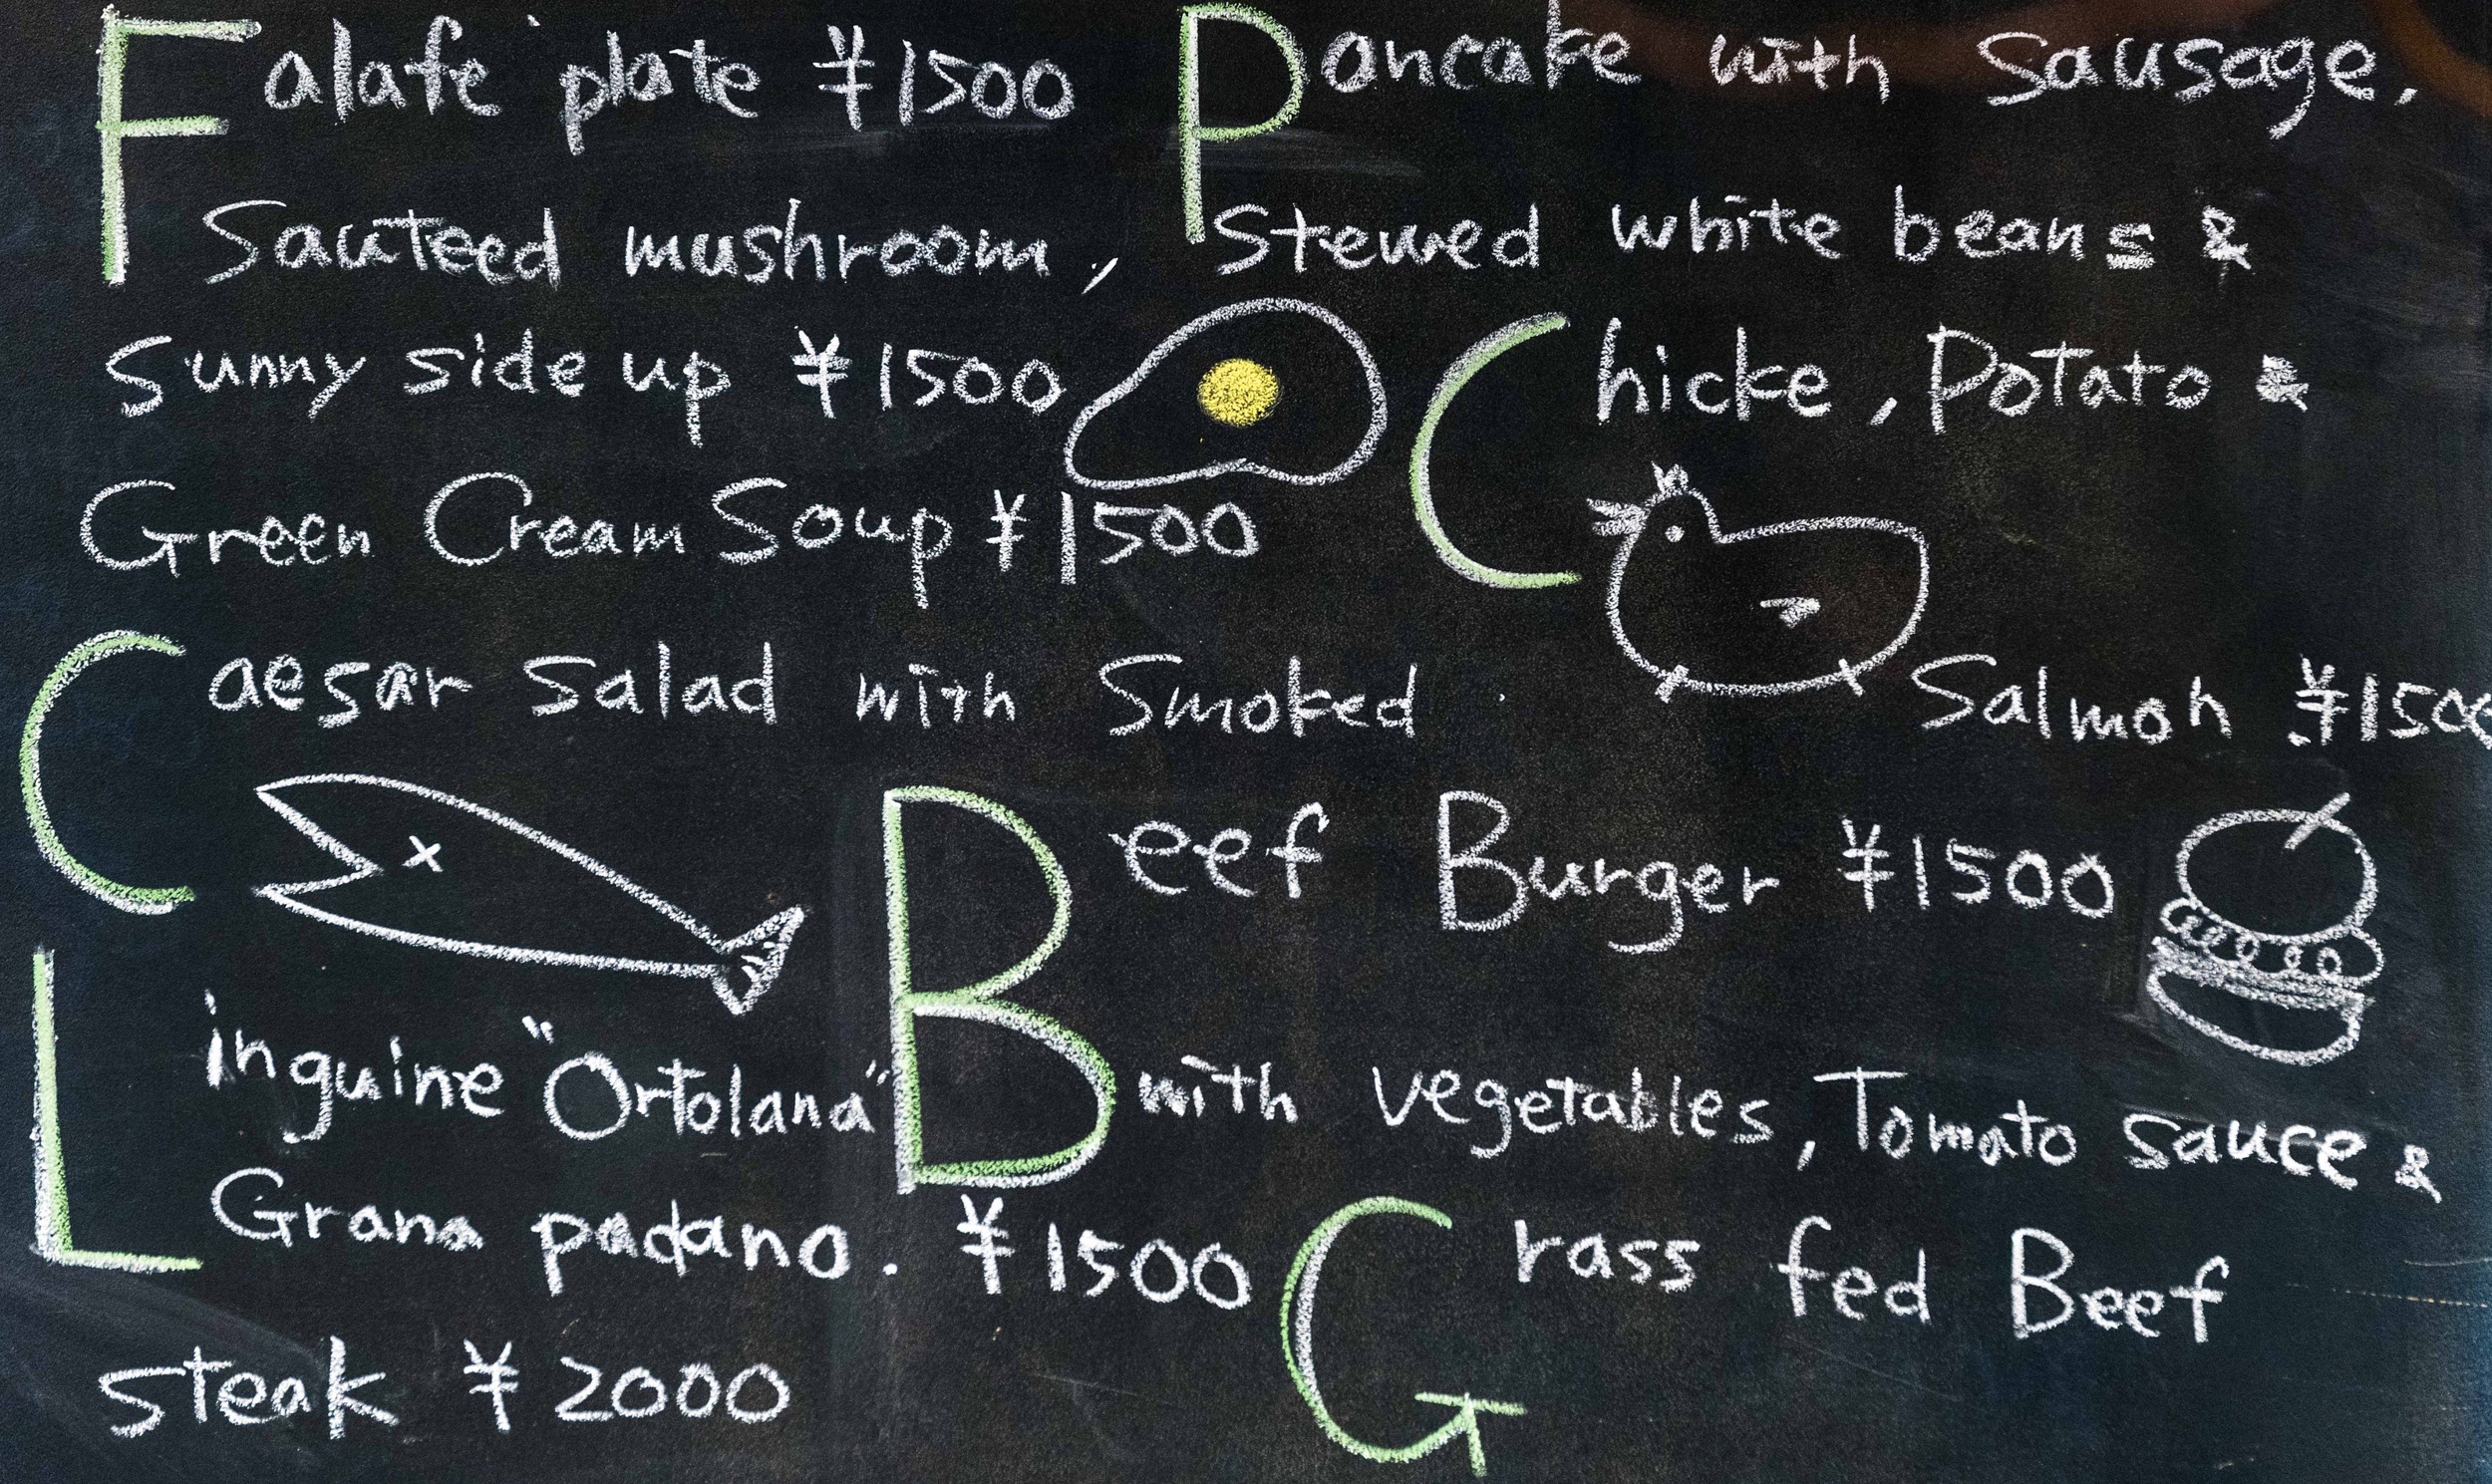 Falafe plate ¥1500 Pancake with Sausage,
Sauteed mushroom, Stewed white beans &
Sunny side up ¥1500 Chicke, Potato &
Green Cream Soup ¥1500
Caesar Salad with Smoked Salmon ¥1500
Beef Burger ¥1500
Linguine "Ortolana" with vegetables, Tomato sauce &
Grana padano. ¥1500 Grass fed Beef
Steak ¥2000